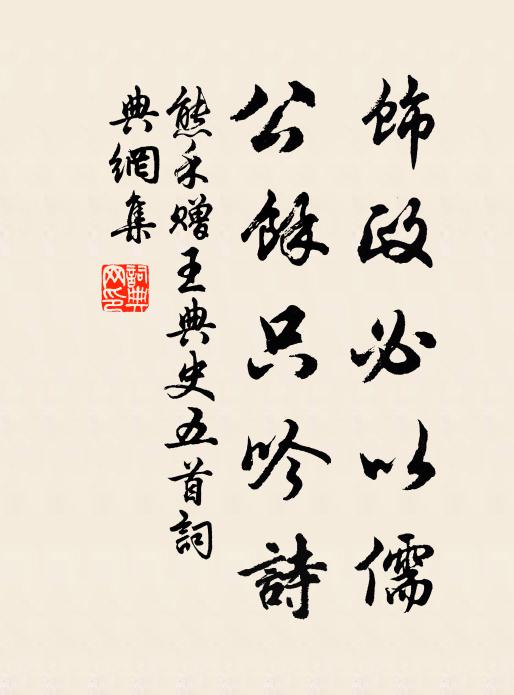 飾政必以儒
公餘只吟詩
熊禾贈王典史五首詞
典網集
詞典網印